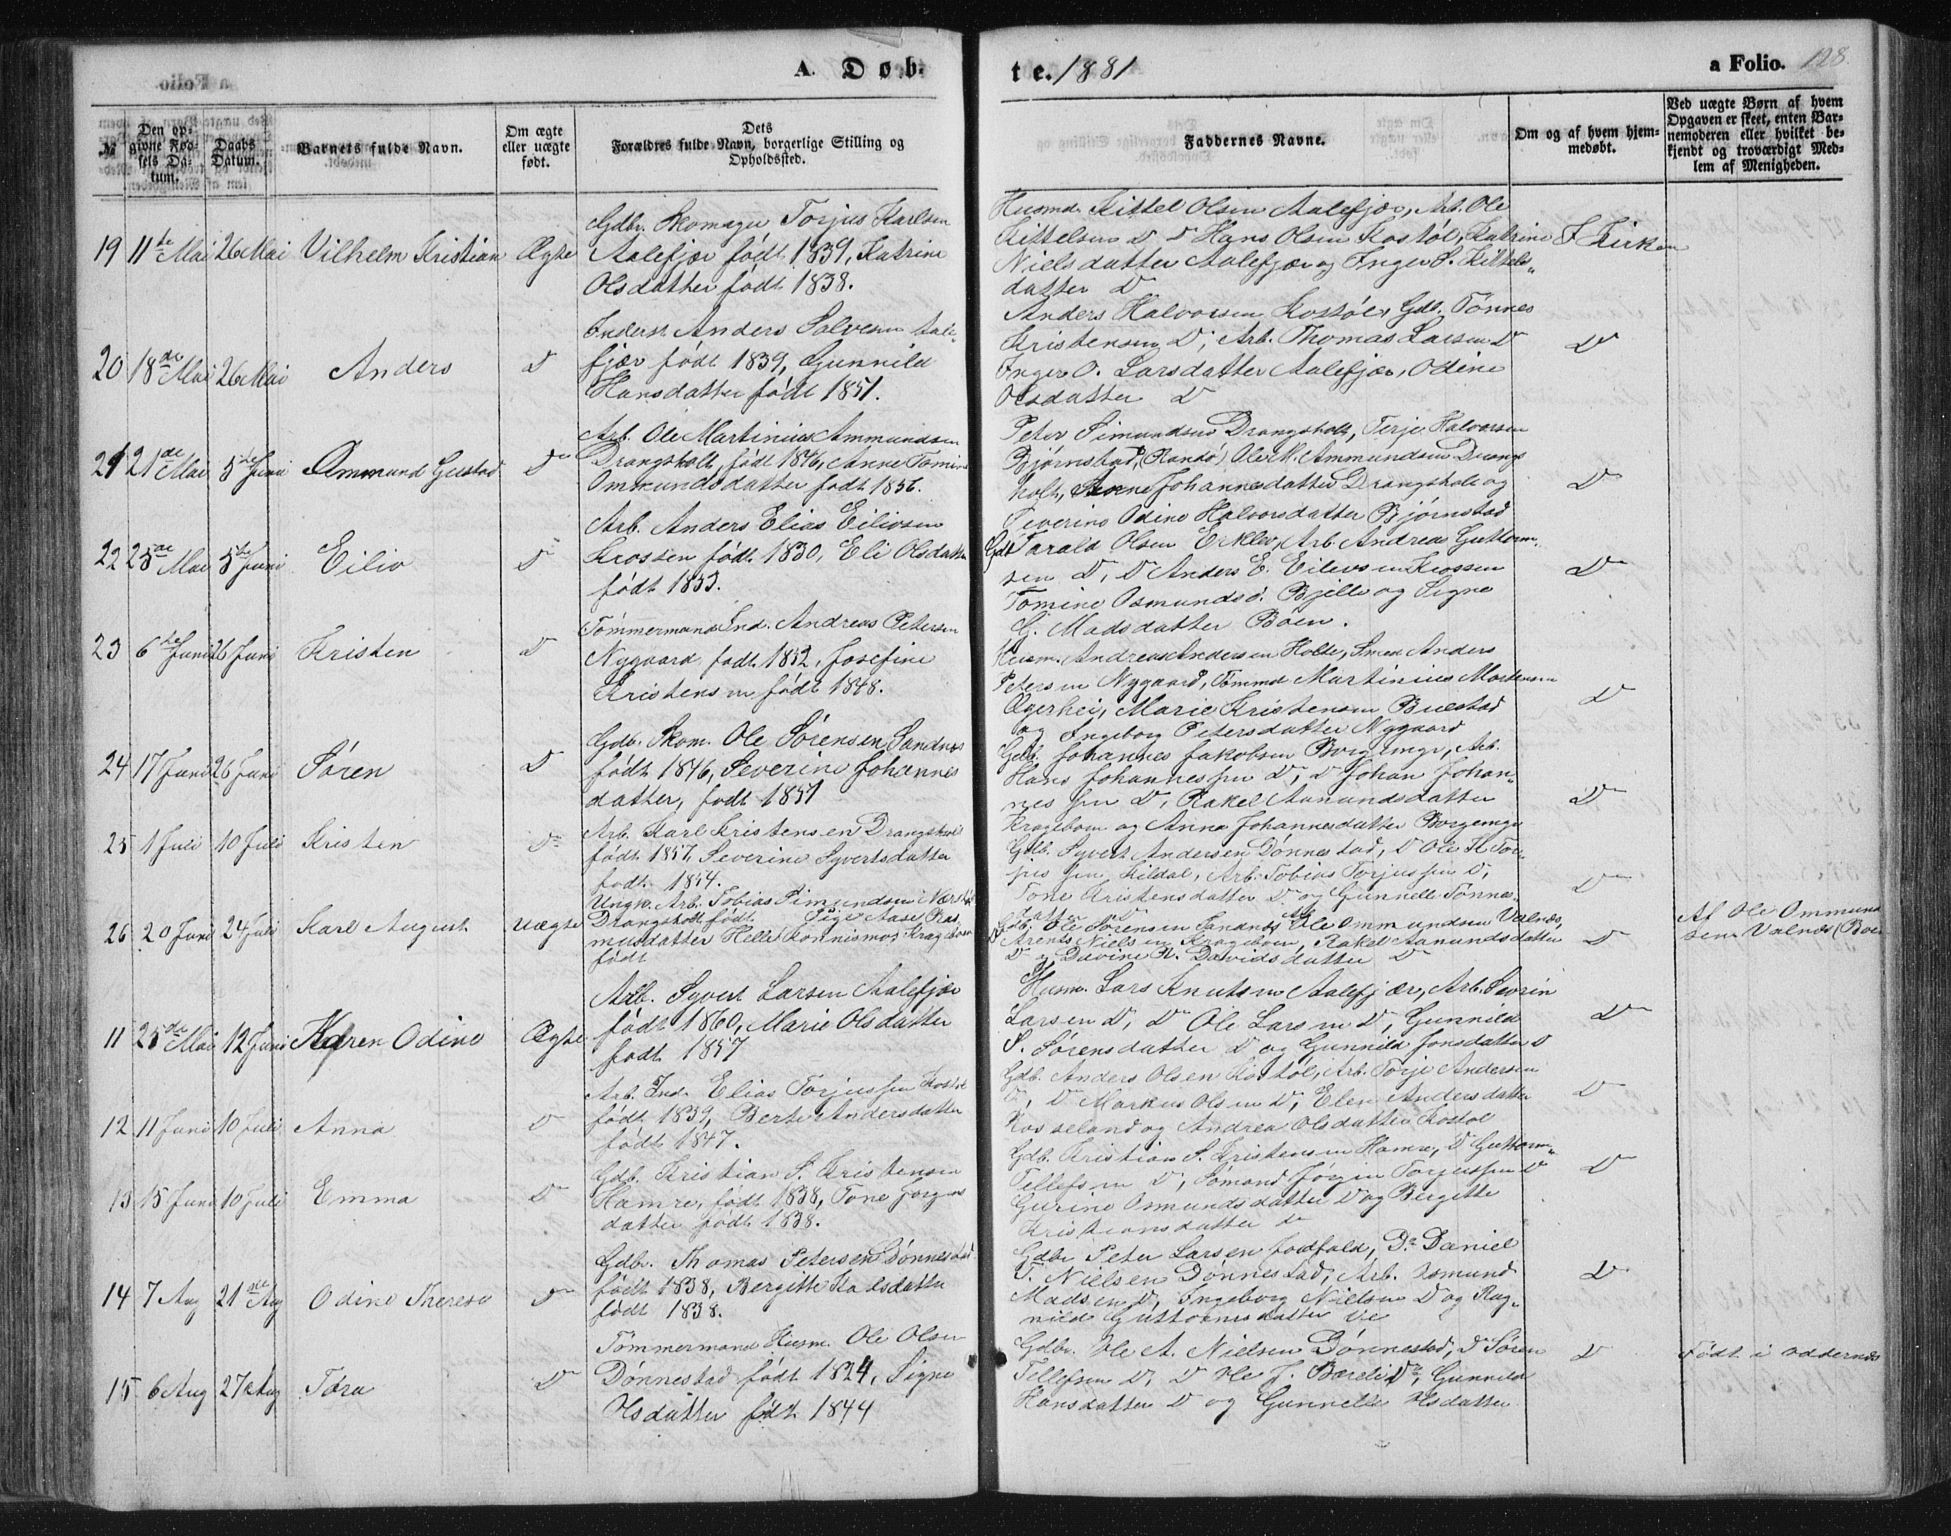 A. Døb-
te. 1881
a Folio. 128.
№
Den op-
givne Fød-
sels Da-
tum.
Daabs
Datum.
Barnets fulde Navn.
Om ægte
eller uægte
født.
Dets
Forældres fulde Navn, borgerlige Stilling og
Opholdssted.
Faddernes Navne.
Om og af hvem hjem-
medøbt.
Ved uægte Børn af hvem
Opgaven er skeet, enten Bar-
nemoderen eller hvilket be-
kjendt og troværdigt Med-
lem af Menigheden.
19 11te Mai 26 Mai Vilhelm Kristian Ægte
Gdbr. Skomager Torjus Karlsen
Aalefjær født 1839, Katrine
Olsdatter født 1838.
Husmd. Kittel Olsen Aalefjær, Arb. Ole
Kittelsen D D Hans Olsen Kostøl, Katrine
Nielsdatter Aalefjær og Inger S. Kittels-
datter D
I Kirken
20 18de Mai 26 Mai Anders D
Inderst Anders Salvesen Aale-
fjær født 1839, Gunnild
Hansdatter født 1851.
Anders Halvorsen Kostøl, Gdb. Tønnes
Kristensen D, Arb. Thomas Larsen D
Inger O. Larsdatter Aalefjær, Odine
Olsdatter D
D
21 21de Mai 5te Juni Ommund Gustav D
Arb. Ole Martinius Ammundsen
Drangsholt, født 1846, Anne Tomine
Ommundsdatter født 1856.
Peter Simundsen Drangsholt, Terje Halvorsen
Bjørnstad, (Randø) Ole M. Ammundsen Drangs
holt, Johannesdatter Drangsholt og
Severine Odine Halvorsdatter Bjørnstad
D
22 25de Mai 5te Juni Eiliv D
Arb. Anders Elias Eilivsen
Krossen født 1830, Eli Olsdatter
født 1833.
Gdb Tarald Olsen Erklev, Arb. Andreas Guttorm-
sen D, D Anders E. Eilevsen Krossen
Tomine Osmundsd. Bjelle og Signe
G. Madsdatter Boen.
D
23 6te Juni 26 Juni Kristen D
Tømmermand Ind. Andreas Petersen
Nygaard født 1852, Josefine
Kristensen født 1848.
Husm. Andreas Andersen Holte, Smed Anders
Petersen Nygaard, Tømmd Martinius Mortensen
Ægerhei, Marie Kristensen Buestad
og Ingeborg Petersdatter Nygaard
D
24 17 Juni 26 Juni Søren D
Gdb. Skom. Ole Sørensen Sandnes
født 1846, Severine Johannes
datter, født 1851
Gdb. Johannes Jakobsen Borgemyr, Arb.
Hans Johannessen D, D Johan Johan-
nessen D, Rakel Aanundsdatter
Krageboen og Anna Johannesdatter Borgemyr
D
25 1 Juli 10 Juli Kristen D
Arb. Karl Kristensen Drangsholt
født 1857 Severine Syvertsdatter
født 1854.
Gdb. Syvert Andersen Dønnestad, D Ole K Tor-
jussen Kildal, Arb. Tobias Torjussen D,
Tone Kristensdatter D og Gunnelle Tønnes-
datter D
D
26 20 Juni 24 Juli Karl August Uægte
Ungk. Arb. Tobias Simundsen
Drangsholt født Pige Aase Ras
musdatter Helle Krageboen
født
Gdb. Ole Sørensen Sandnes, Ole Ommundsen Valnes,
Arents Nielsen Krageboen, Rakel Aanundsdatter
D og Davine R. Davidsdatter D
D
Af Ole Ommund
sen Valnes (Boen
11 25de Mai 12 Juni Karen Odine Ægte
Arb. Syvert Larsen Aalefjær
født 1860, Marie Olsdatter
født 1857
Husm. Lars Knutsen Aalefjær, Arb. Sevrin
Larsen D, D Ole Larsen D, Gunnild
S. Sørensdatter D og Gunnild Jonsdatter D
D
12 11 Juni 10 Juli Anna D
Arb. Ind. Elias Torjussen Kostøl
født 1839, Berte Andersdatter
født 1847.
Gdb. Anders Olsen Kostøl, Arb. Torje Andersen
D, D Markus Olsen D, Elen Andersdatter
Kosseland og Andrea Olsdatter Kostøl
D
13 15 Juni 10 Juli Emma D
Gdb. Kristian S. Kristensen
Hamre, født 1838, Tone Jørgens
datter født 1838.
Gdb. Kristian S. Kristensen Hamre, D Guttorm
Tellefsen D, Sømand Jørgen Torjussen D
Gurine Osmundsdatter D og Bergitte
Kristiansdatter D
D
14 7 Aug 21de Aug Odine Therese D
Gdbr. Thomas Petersen Dønnestad
født 1838, Bergitte datter
født 1838.
Gdbr Peter Larsen Fodfald, Do Daniel
T. Nielsen Dønnestad, Arb. Osmund
Madsen D, Ingeborg Nielsen D og Rag-
nild Guttormsdatter
D
15 6 Aug 27 Aug Tora D
Tømmermand Husm. Ole Olsen
Dønnestad født 1824, Signe
Olsdatter født 1844
Gdbr. Ole A. Nielsen Dønnestad, D Søren
Tellefsen D, D Ole J. Bærelid, Gunnild
Hansdatter D og Gunnelle Olsdatter
D
Født i Oddernes